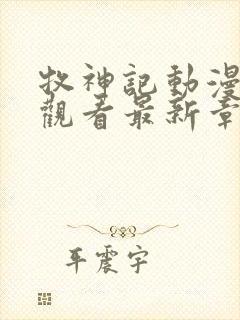 牧神記動漫
觀看最新章
平震宇